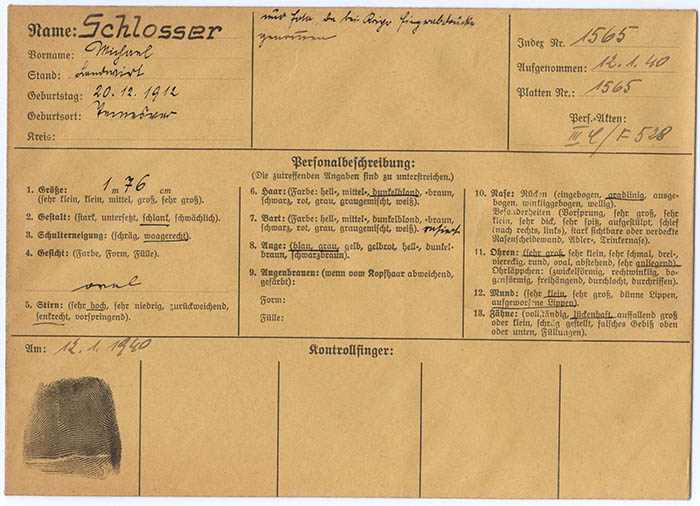 Name: Schlosser
Vorname: Michael
Stand: Landwirt
Geburtstag: 20.12.1912
Geburtsort: Temesver
Kreis:
nur Foto, da bei Kripo Fingerabdrücke
genommen
Index Nr. 1565
Aufgenommen: 12.1.40
Platten Nr.: 1565
Pers.-Akten:
III C/F 528
Personalbeschreibung:
(Die zutreffenden Angaben sind zu unterstreichen.)
1. Größe: 1 m 76 cm
(sehr klein, klein, mittel, groß, sehr groß).
2. Gestalt: (stark, untersetzt, schlank, schwächlich).
3. Schulterneigung: (schräg, waagerecht).
4. Gesicht: (Farbe, Form, Fülle).
oval
5. Stirn: (sehr hoch, sehr niedrig, zurückweichend,
senkrecht, vorspringend).
6. Haar: (Farbe: hell-, mittel-, dunkelblond, -braun,
schwarz, rot, grau, graugemischt, weiß).
7. Bart: (Farbe: hell-, mittel-, dunkelblond, -braun,
schwarz, rot, grau, graugemischt, weiß). rasiert
8. Auge: (blau, grau, gelb, gelbrot, hell-, dunkel-
braun, schwarzbraun).
9. Augenbrauen: (wenn vom Kopfhaar abweichend,
gefärbt):
Form:
Fülle:
10. Nase: Rücken (eingebogen, gradlinig, ausge-
bogen, winkliggebogen, wellig).
Besonderheiten (Vorsprung, sehr groß, sehr
klein, sehr dick, sehr spitz, aufgestülpt, schief
(nach rechts, links), stark sichtbare oder verdeckte
Nasenscheidewand, Adler-, Trinkernase).
11. Ohren: (sehr groß, sehr klein, sehr schmal, drei-,
viereckig, rund, oval, abstehend, sehr anliegend).
Ohrläppchen: (zwickelförmig, rechtwinklig, bo-
genförmig, freihängend, durchlocht, durchriffen).
12. Mund: (sehr klein, sehr groß, dünne Lippen,
aufgeworfene Lippen).
13. Zähne: (vollständig, lückenhaft, auffallend groß
oder klein, schräg gestellt, falsches Gebiß oben
oder unten, Füllungen).
Am: 12.1.1940
Kontrollfinger: